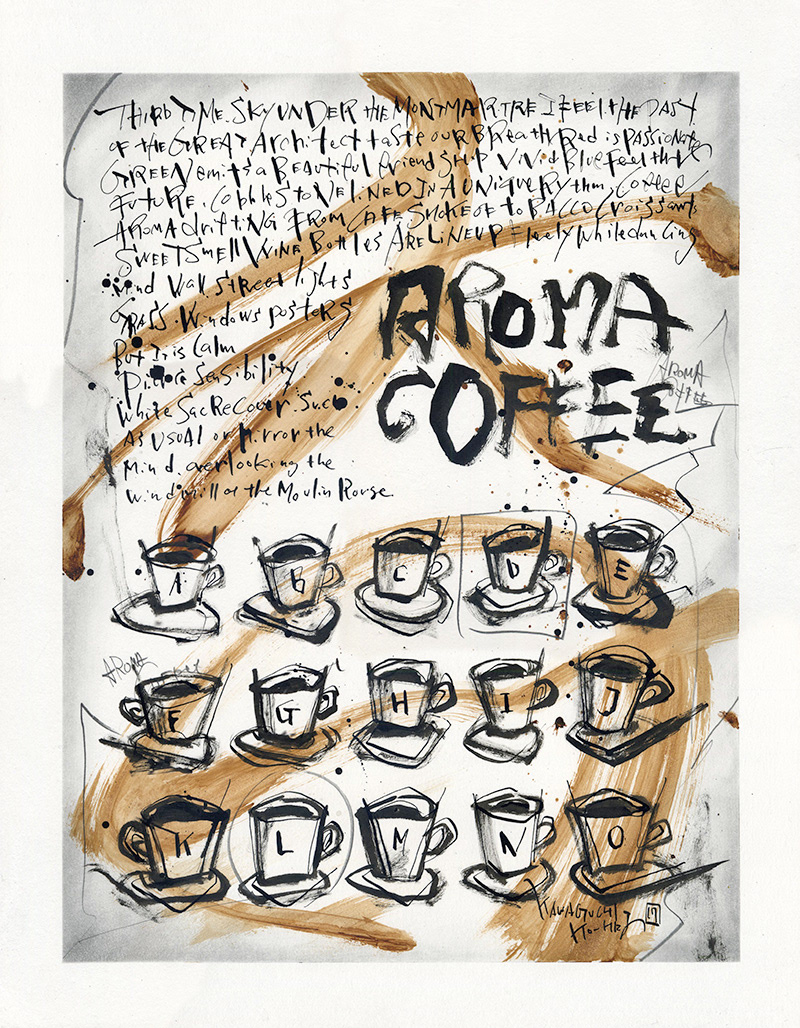 THIRD TIME. SKY UNDER THE MONTMARTRE I FEEL THE DAST
OF THE GREAT Architect taste OUR BREATH Red is PASSIONATE
GREEN emits a BEAUTIFUL friendship Vivid Blue Feel the
FUTURE. Cobblestone LINED IN A UNIQUE RYthm, Coffee
AROMA drifting FROM CAFE Smoke of toBACCO croissants
SWEET SMELL WINE Bottles ARE LINEUP Freely White dancing
Mind Wall Street lights
GRASS. Windows posters
But It is Calm
Picture Sensibility
White Sacre Coeur. Such
As USUAL or Mirror the
Mind. overlooking the
windmill of the Moulin Rouge.
AROMA
COFFEE
AROMA
A B C D E
AROMA
F G H I J
K L M N O
KAWAGUCHI